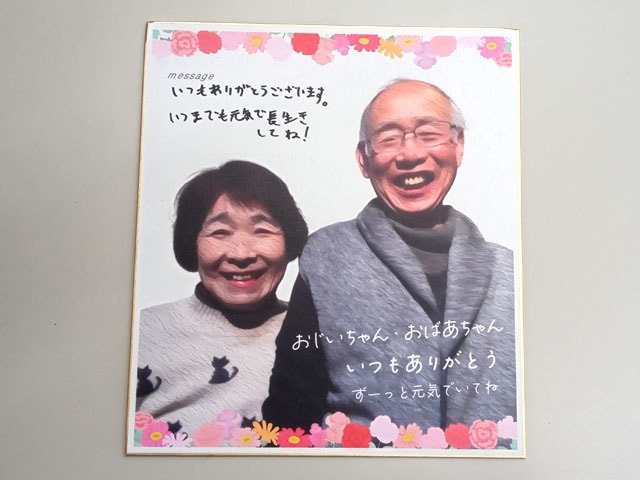 message
いつもありがとうございます。
いつまでも元気で長生き
してね!
おじいちゃん・おばあちゃん
いつもありがとう
ずーっと元気でいてね